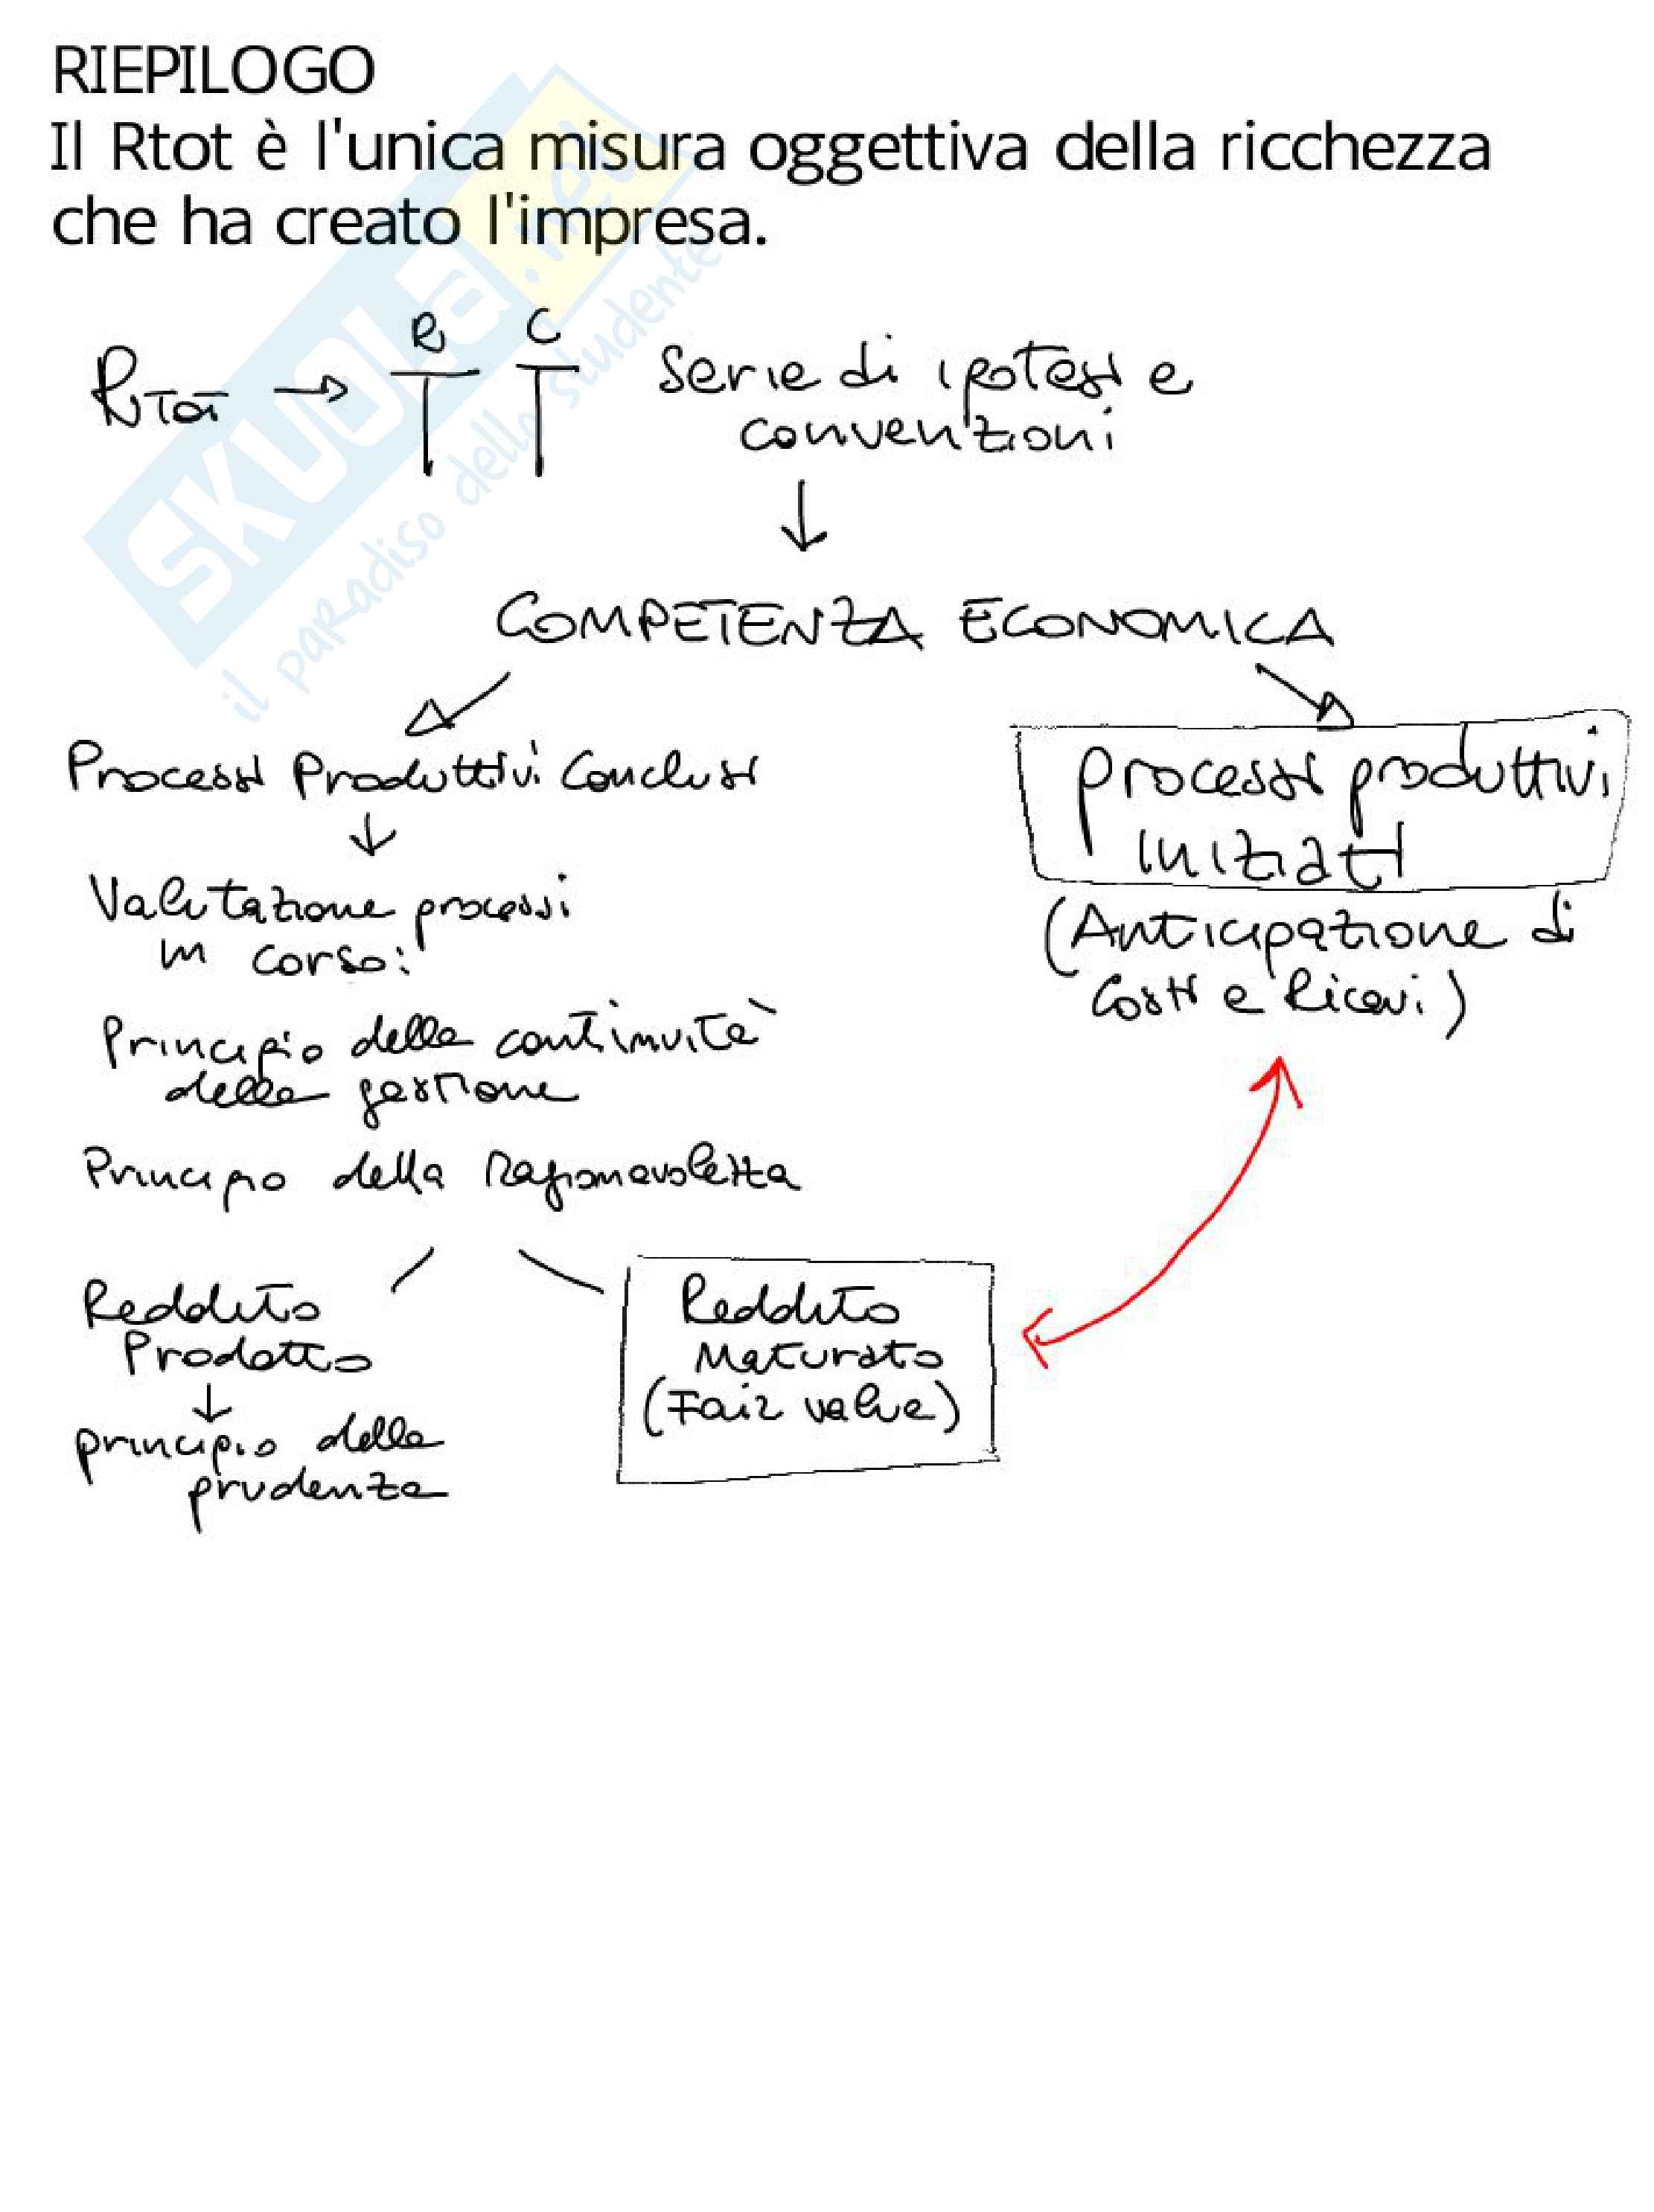 RIEPILOGO
Il Rtot è l'unica misura oggettiva della ricchezza
che ha creato l'impresa.
R C
RTOT → Serie di ipotesi e
convenzioni
COMPETENZA ECONOMICA
Processi Produttivi Conclusi
processi produttivi
iniziati
Valutazione processi
in corso:
(Anticipazione di
Costi e Ricavi)
Principio della continuità
della gestione
Principio della Ragionevolezza
Reddito
Prodotto
Reddito
Maturato
(Fair value)
principio della
prudenza
SKUOLA.net
il paradiso dello studente